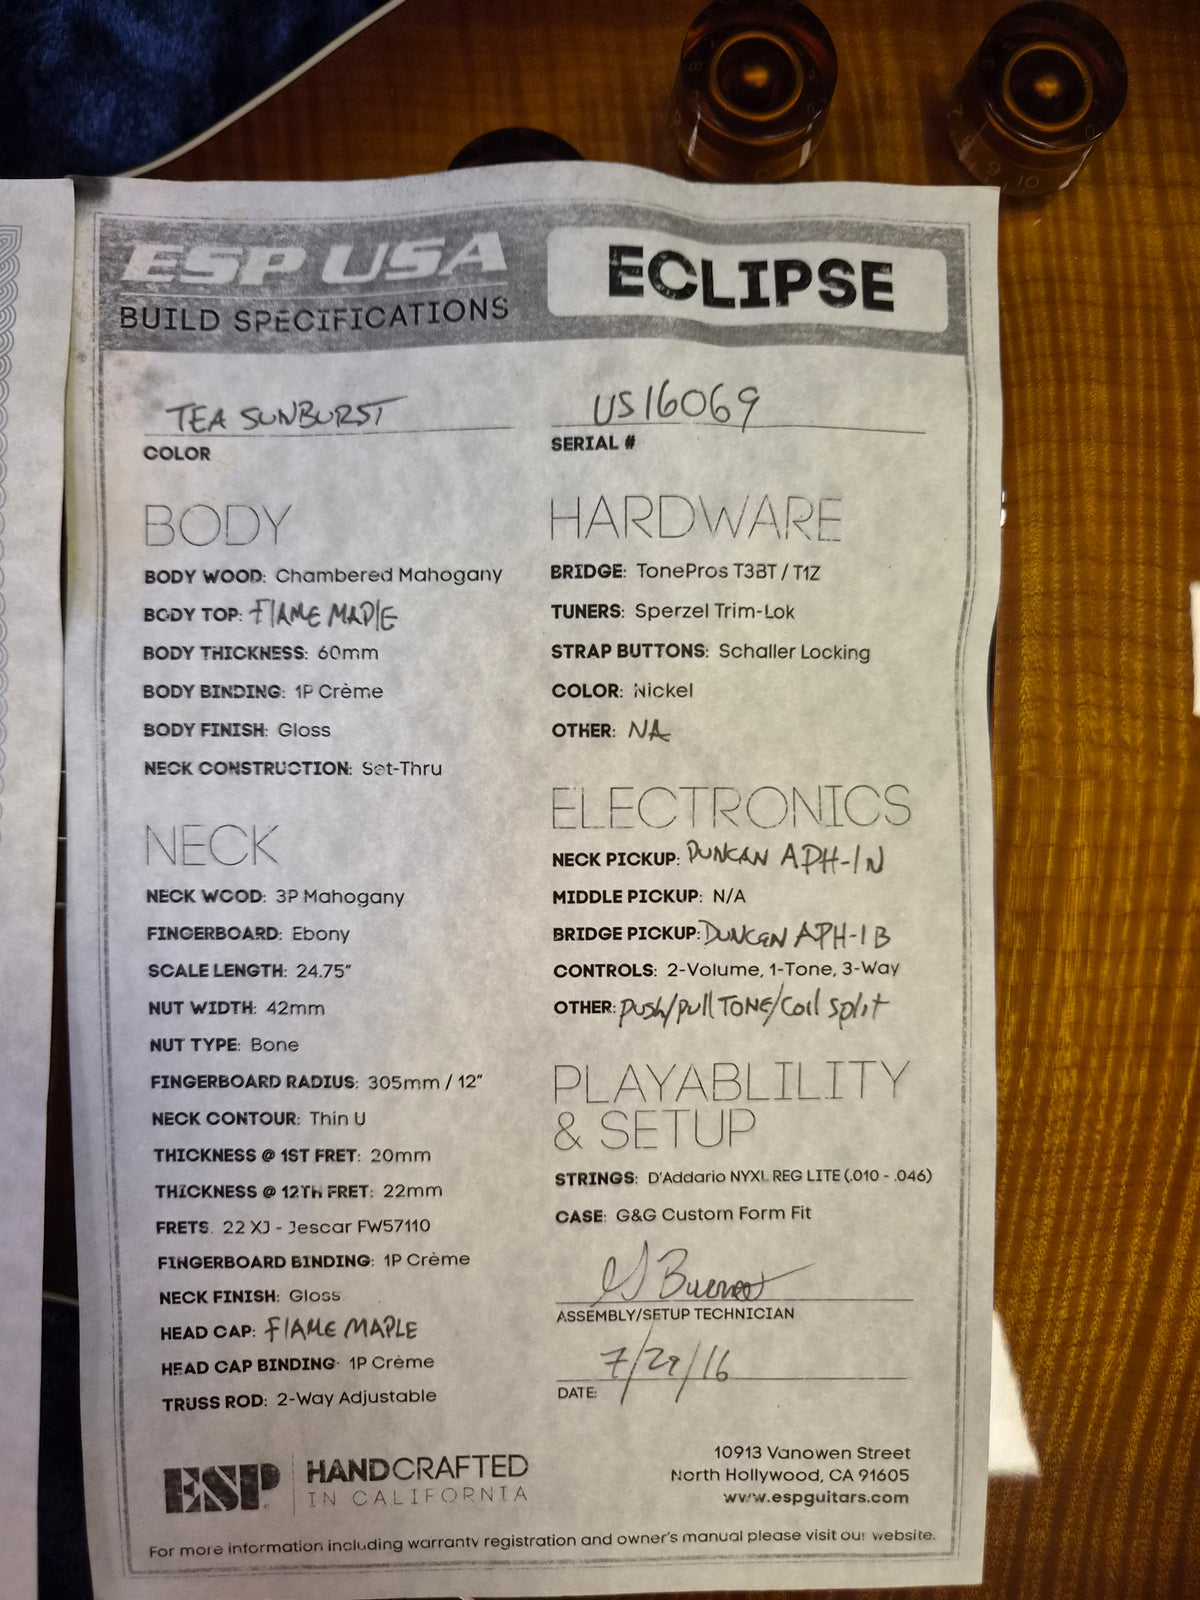 ESP USA
BUILD SPECIFICATIONS
ECLIPSE
TEA SUNBURST
COLOR
US16069
SERIAL #
BODY
BODY WOOD: Chambered Mahogany
BODY TOP: FLAME MAPLE
BODY THICKNESS: 60mm
BODY BINDING: 1P Crème
BODY FINISH: Gloss
NECK CONSTRUCTION: Set-Thru
NECK
NECK WOOD: 3P Mahogany
FINGERBOARD: Ebony
SCALE LENGTH: 24.75"
NUT WIDTH: 42mm
NUT TYPE: Bone
FINGERBOARD RADIUS: 305mm / 12"
NECK CONTOUR: Thin U
THICKNESS @ 1ST FRET: 20mm
THICKNESS @ 12TH FRET: 22mm
FRETS: 22 XJ - Jescar FW57110
FINGERBOARD BINDING: 1P Crème
NECK FINISH: Gloss
HEAD CAP: FLAME MAPLE
HEAD CAP BINDING: 1P Crème
TRUSS ROD: 2-Way Adjustable
HARDWARE
BRIDGE: TonePros T3BT / T1Z
TUNERS: Sperzel Trim-Lok
STRAP BUTTONS: Schaller Locking
COLOR: Nickel
OTHER: NA
ELECTRONICS
NECK PICKUP: DUNCAN APH-1N
MIDDLE PICKUP: N/A
BRIDGE PICKUP: DUNCAN APH-1B
CONTROLS: 2-Volume, 1-Tone, 3-Way
OTHER: Push/pull TONE/Coil split
PLAYABLILITY
& SETUP
STRINGS: D'Addario NYXL REG LITE (.010 - .046)
CASE: G&G Custom Form Fit
ASSEMBLY/SETUP TECHNICIAN
7/29/16
DATE:
ESP
HANDCRAFTED
IN CALIFORNIA
10913 Vanowen Street
North Hollywood, CA 91605
www.espguitars.com
For more information including warranty registration and owner's manual please visit our website.